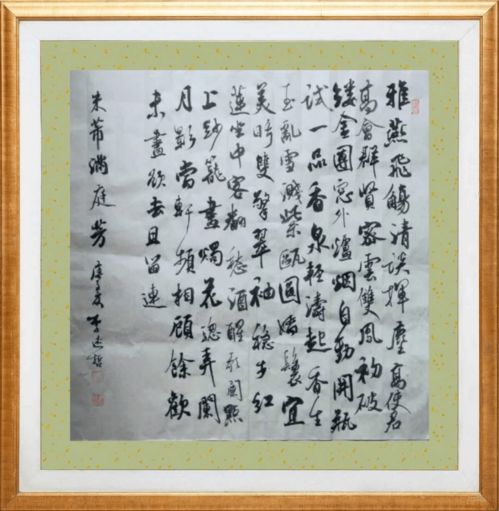 雅燕飛觴清談揮麈高使君
高會群賢密雲雙鳳初破
縷金團窓外爐烟自動開瓶
試一品香泉輕濤起香生
玉亂雪濺紫甌圓嬌鬟宜
美盼雙擎翠袖穩步紅
蓮坐中客翻愁酒醒歌闌點
上紗籠畫燭花驄弄闌
月影當軒頻相顧餘歡
未盡欲去且留連
米芾滿庭芳 李